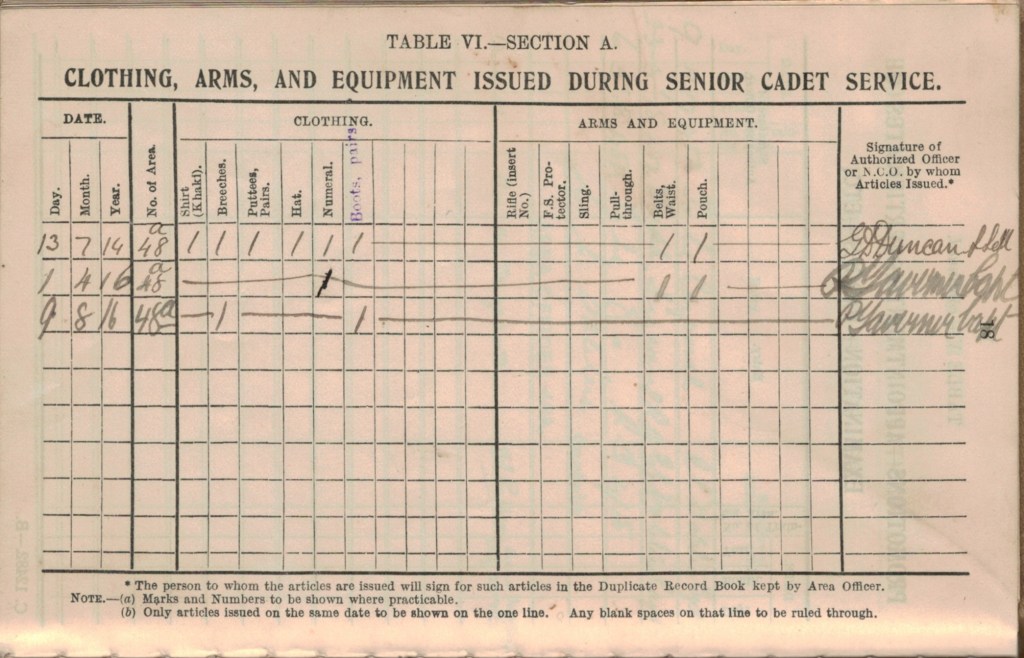 TABLE VI.—SECTION A.
CLOTHING, ARMS, AND EQUIPMENT ISSUED DURING SENIOR CADET SERVICE.
DATE. CLOTHING. ARMS AND EQUIPMENT.
Day. Month. Year. No. of Area. Shirt (Khaki). Breeches. Puttees, Pairs. Hat. Numeral. Boots, pairs Rifle (insert No.) F.S. Protector. Sling. Pull-through. Belts, Waist. Pouch. Signature of Authorized Officer or N.C.O. by whom Articles Issued.*
13 7 14 48a 1 1 1 1 1 1 1 1 Duncan
1 4 16 48a 1 1 1
9 8 16 48a 1 1
18
* The person to whom the articles are issued will sign for such articles in the Duplicate Record Book kept by Area Officer.
NOTE.—(a) Marks and Numbers to be shown where practicable.
(b) Only articles issued on the same date to be shown on the one line. Any blank spaces on that line to be ruled through.